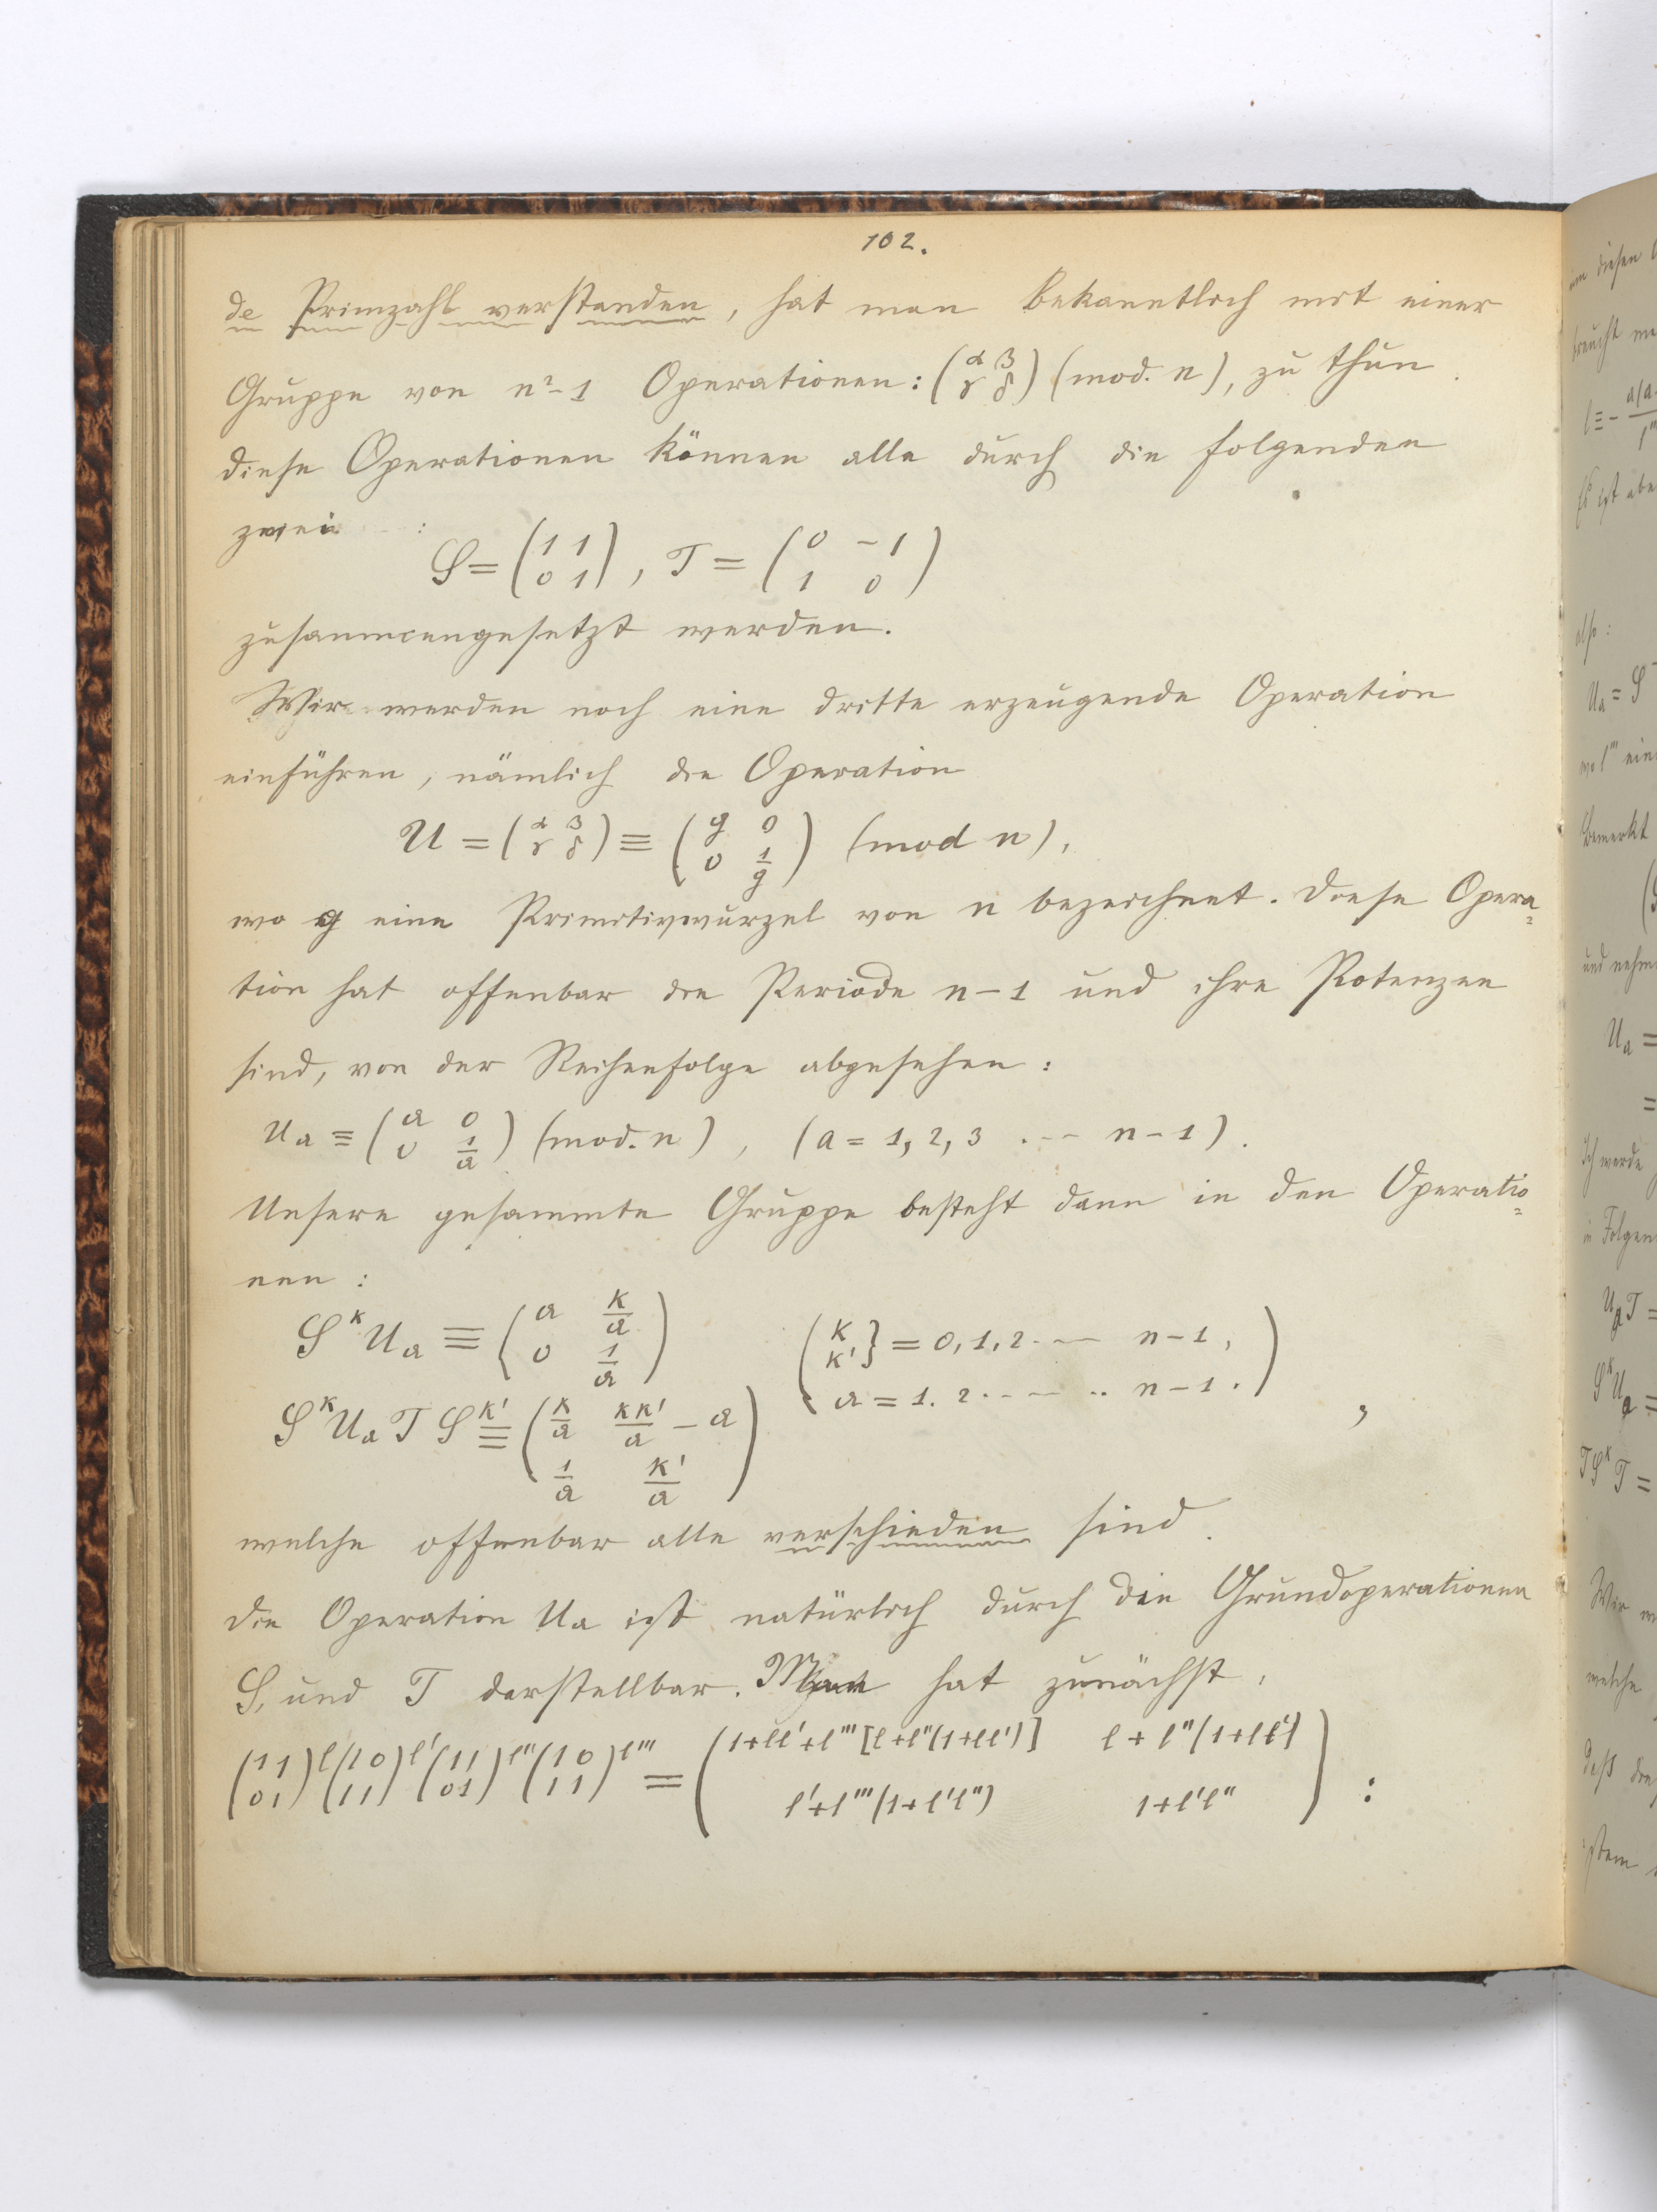 102.
de Primzahl verstanden, hat man bekanntlich mit einer
Gruppe von n²-1 Operationen: (α β / γ δ) (mod. n), zu thun.
diese Operationen können alle durch die folgenden
zwei :
S = (1 1 / 0 1), T = (0 -1 / 1 0)
zusammengesetzt werden.
Wir werden noch eine dritte erzeugende Operation
einführen, nämlich die Operation
U = (α β / γ δ) ≡ (g 0 / 0 1/g) (mod n),
wo g eine Primitivwurzel von n bezeichnet. Diese Opera=
tion hat offenbar die Periode n-1 und ihre Potenzen
sind, von der Reihenfolge abgesehen:
Uₐ ≡ (a 0 / 0 1/a) (mod. n), (a = 1, 2, 3 .-- n-1).
Unsere gesammte Gruppe besteht dann in den Operatio=
nen:
S^κ Uₐ ≡ (a κ/a / 0 1/a) (κ κ'} = 0, 1, 2 .-- n-1,
S^κ Uₐ T S^κ' ≡ (κ/a κκ'/a - a / 1/a κ'/a) a = 1. 2 .--.. n-1.) ,
welche offenbar alle verschieden sind.
die Operation Uₐ ist natürlich durch die Grundoperationen
S, und T darstellbar. Man hat zunächst,
(1 1 / 0 1)^l (1 0 / 1 1)^l' (1 1 / 0 1)^l'' (1 0 / 1 1)^l''' = (1+ll'+l'''[l+l''(1+ll')] l+l''(1+ll') / l'+l'''(1+l'l'') 1+l'l'') :